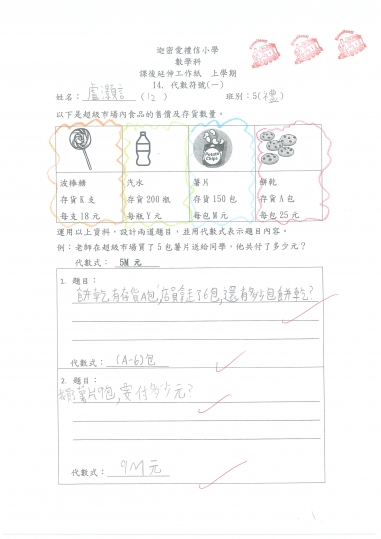 迦密愛禮信小學
數學科
課後延伸工作紙 上學期
14. 代數符號(一)
姓名：盧灝言 (12) 班別：5(禮)
以下是超級市場內食品的售價及存貨數量。
Potato Chips
波棒糖 汽水 薯片 餅乾
存貨K支 存貨200瓶 存貨150包 存貨A包
每支18元 每瓶Y元 每包M元 每包25元
運用以上資料，設計兩道題目，並用代數式表示題目內容。
例：老師在超級市場買了5包薯片送給同學，他共付了多少元？
代數式：5M元
1. 題目：
餅乾有存貨A包,店員拿走了6包,還有多少包餅乾?
代數式：(A-6)包
2. 題目：
薯片9包,要付多少元?
代數式：9M元